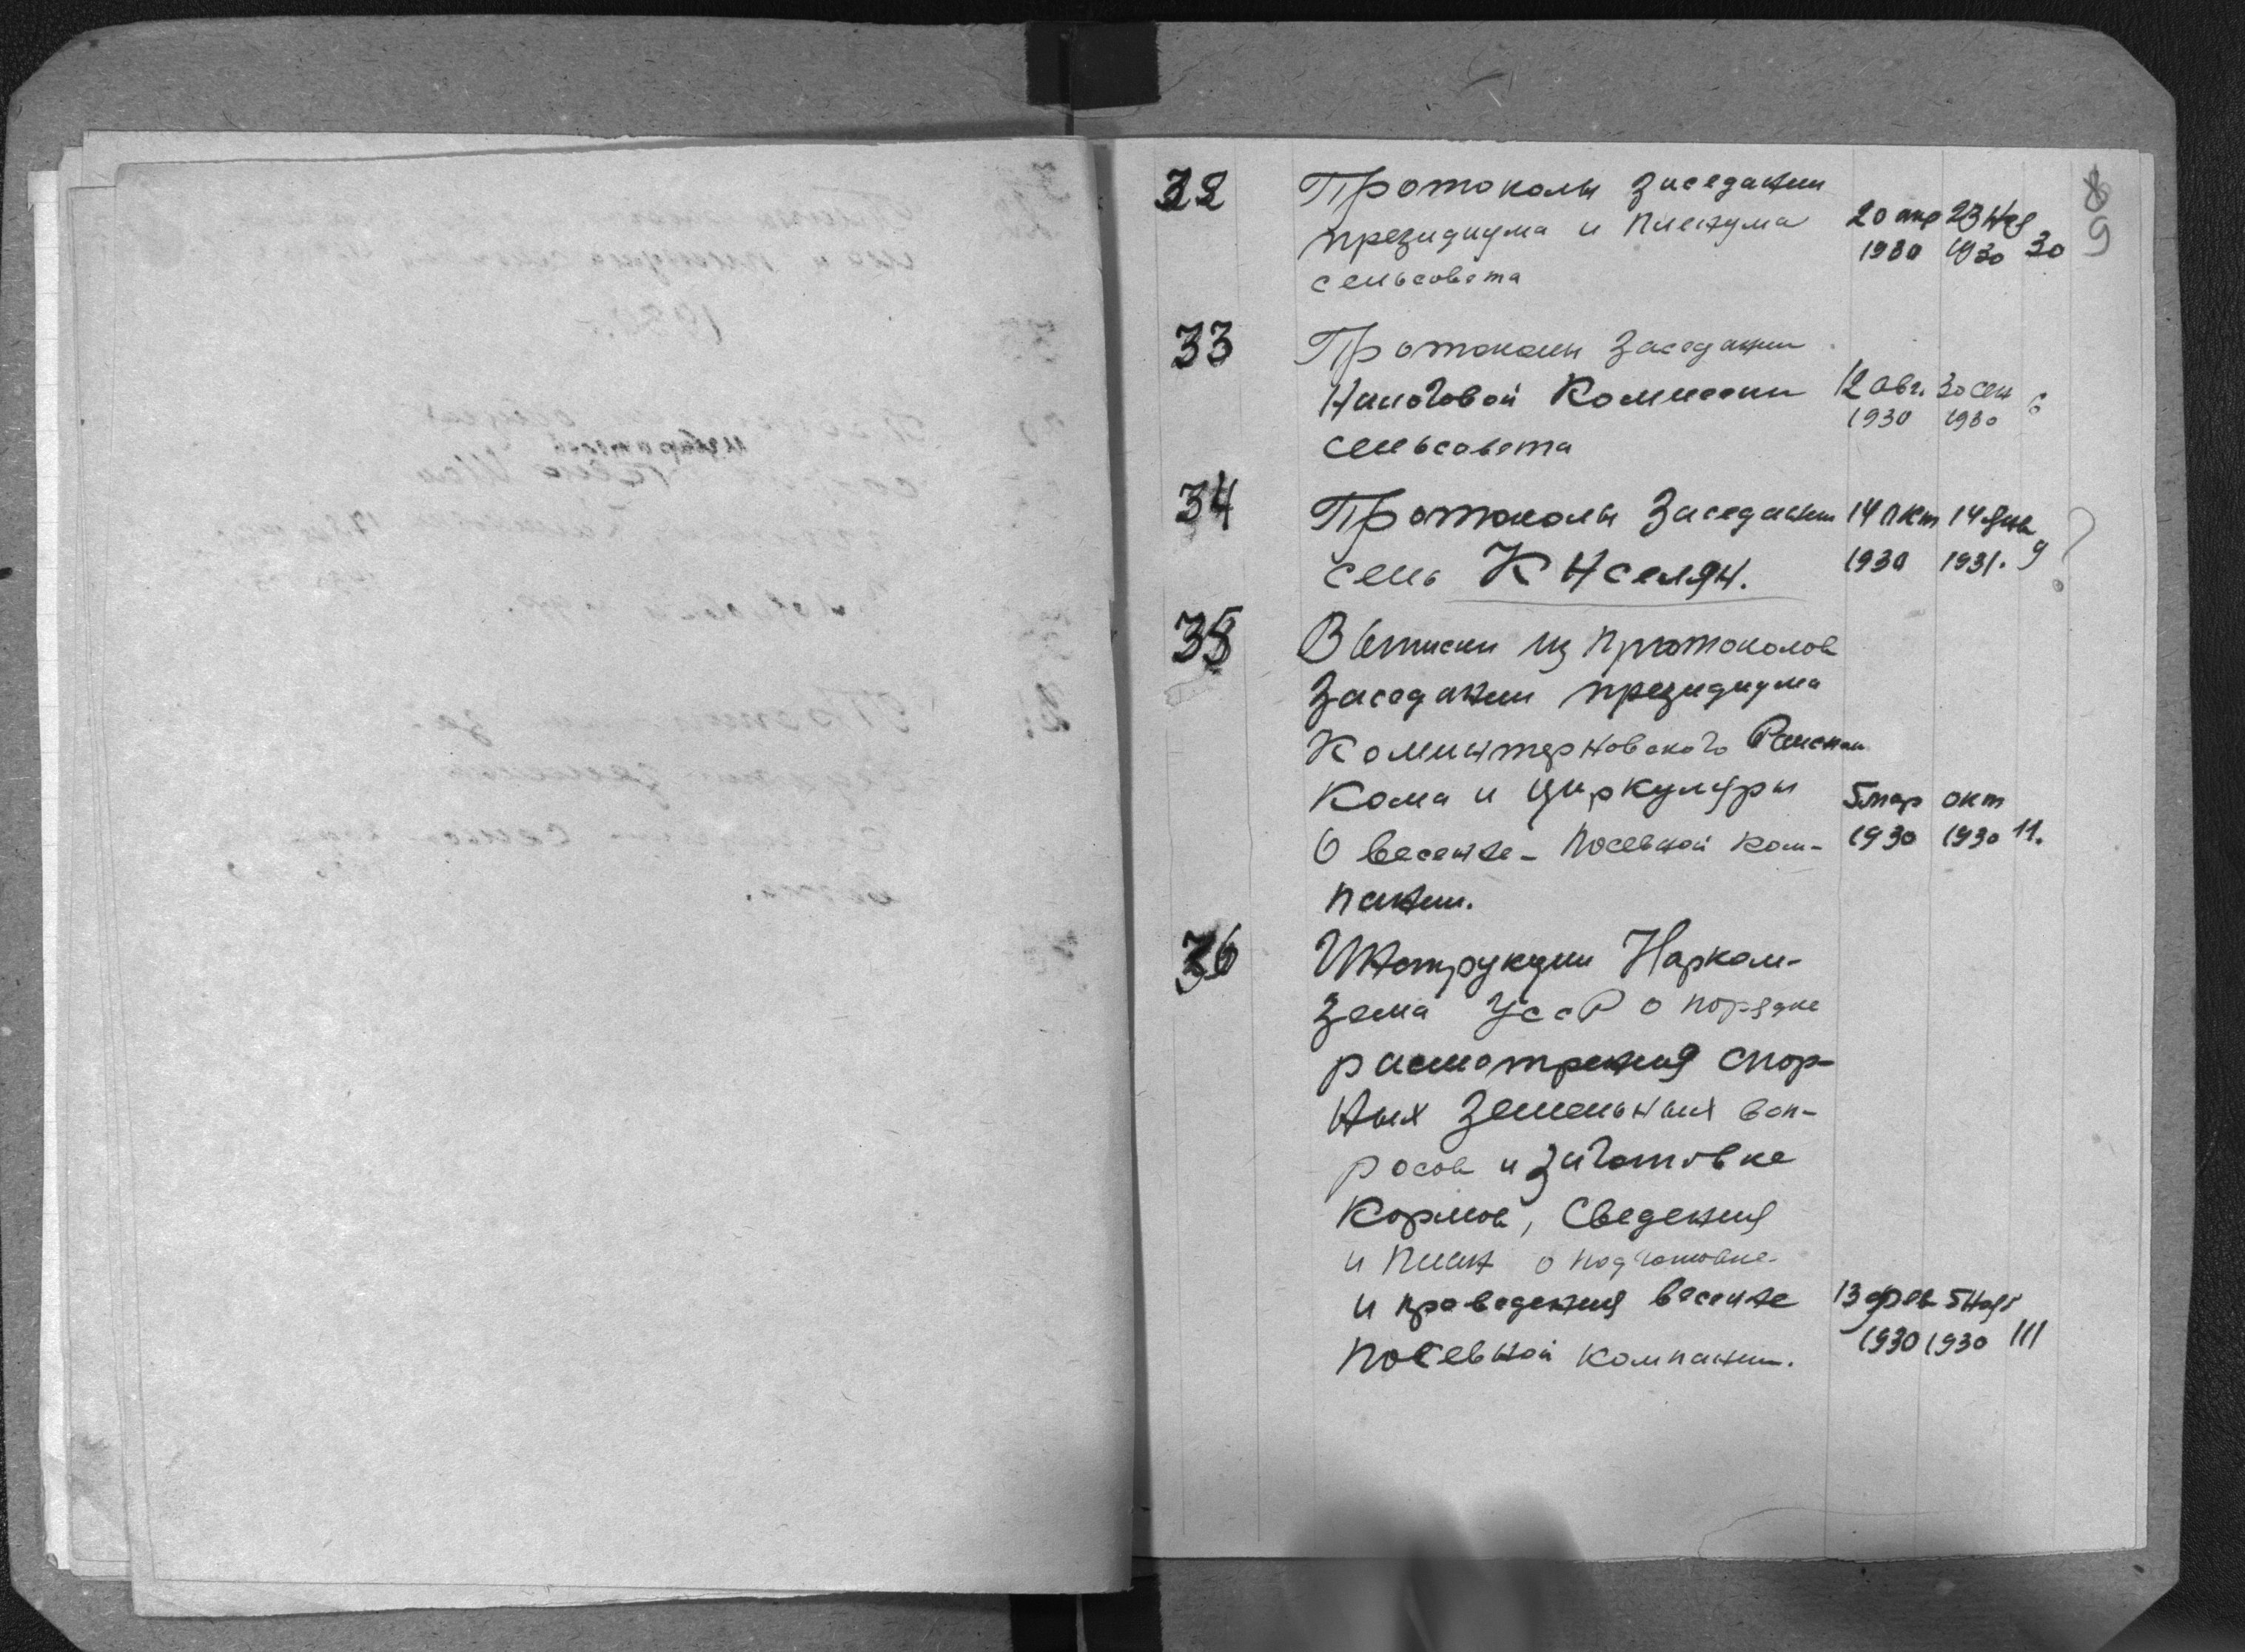 8
9
32 Протоколы заседании
президиума и пленума 20 апр 23 Ноя
сельсовета 1930 1930 30
33 Протоколы заседании
Налоговой Комиссии 12 авг. 30 сен 6
сельсовета 1930 1930
34 Протоколы Заседании 14 окт 14 янв ?
сель К Н селян. 1930 1931. 9
35 Выписки из протоколов
Заседании президиума
Коминтерновского
Кома и циркуляры 5 мар окт
О весенне-посевной ком- 1930 1930 11.
пании.
36 Инструкции Нарком-
зема УССР о порядке
расмотрения спор-
ных земельных воп-
росов и заготовке
Кормов, Сведения
и план о подготовке
и проведения весенне 13 фев 5 Ноя
посевной компании. 1930 1930 111